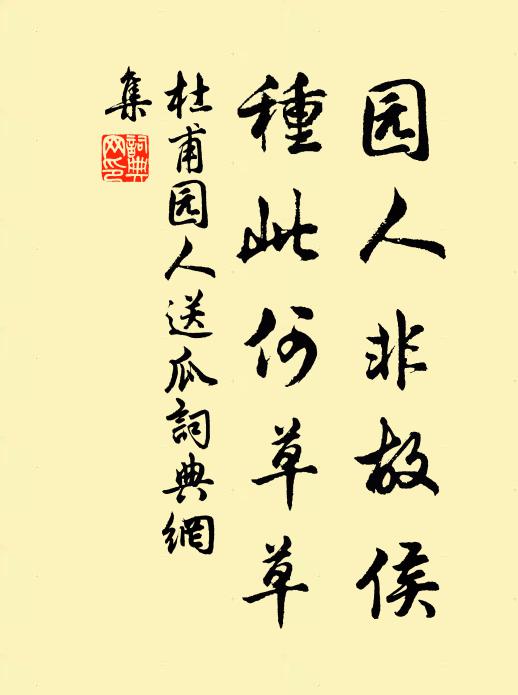 园人非故侯
種此何草草
杜甫园人送瓜詞典網
集
詞典
网印